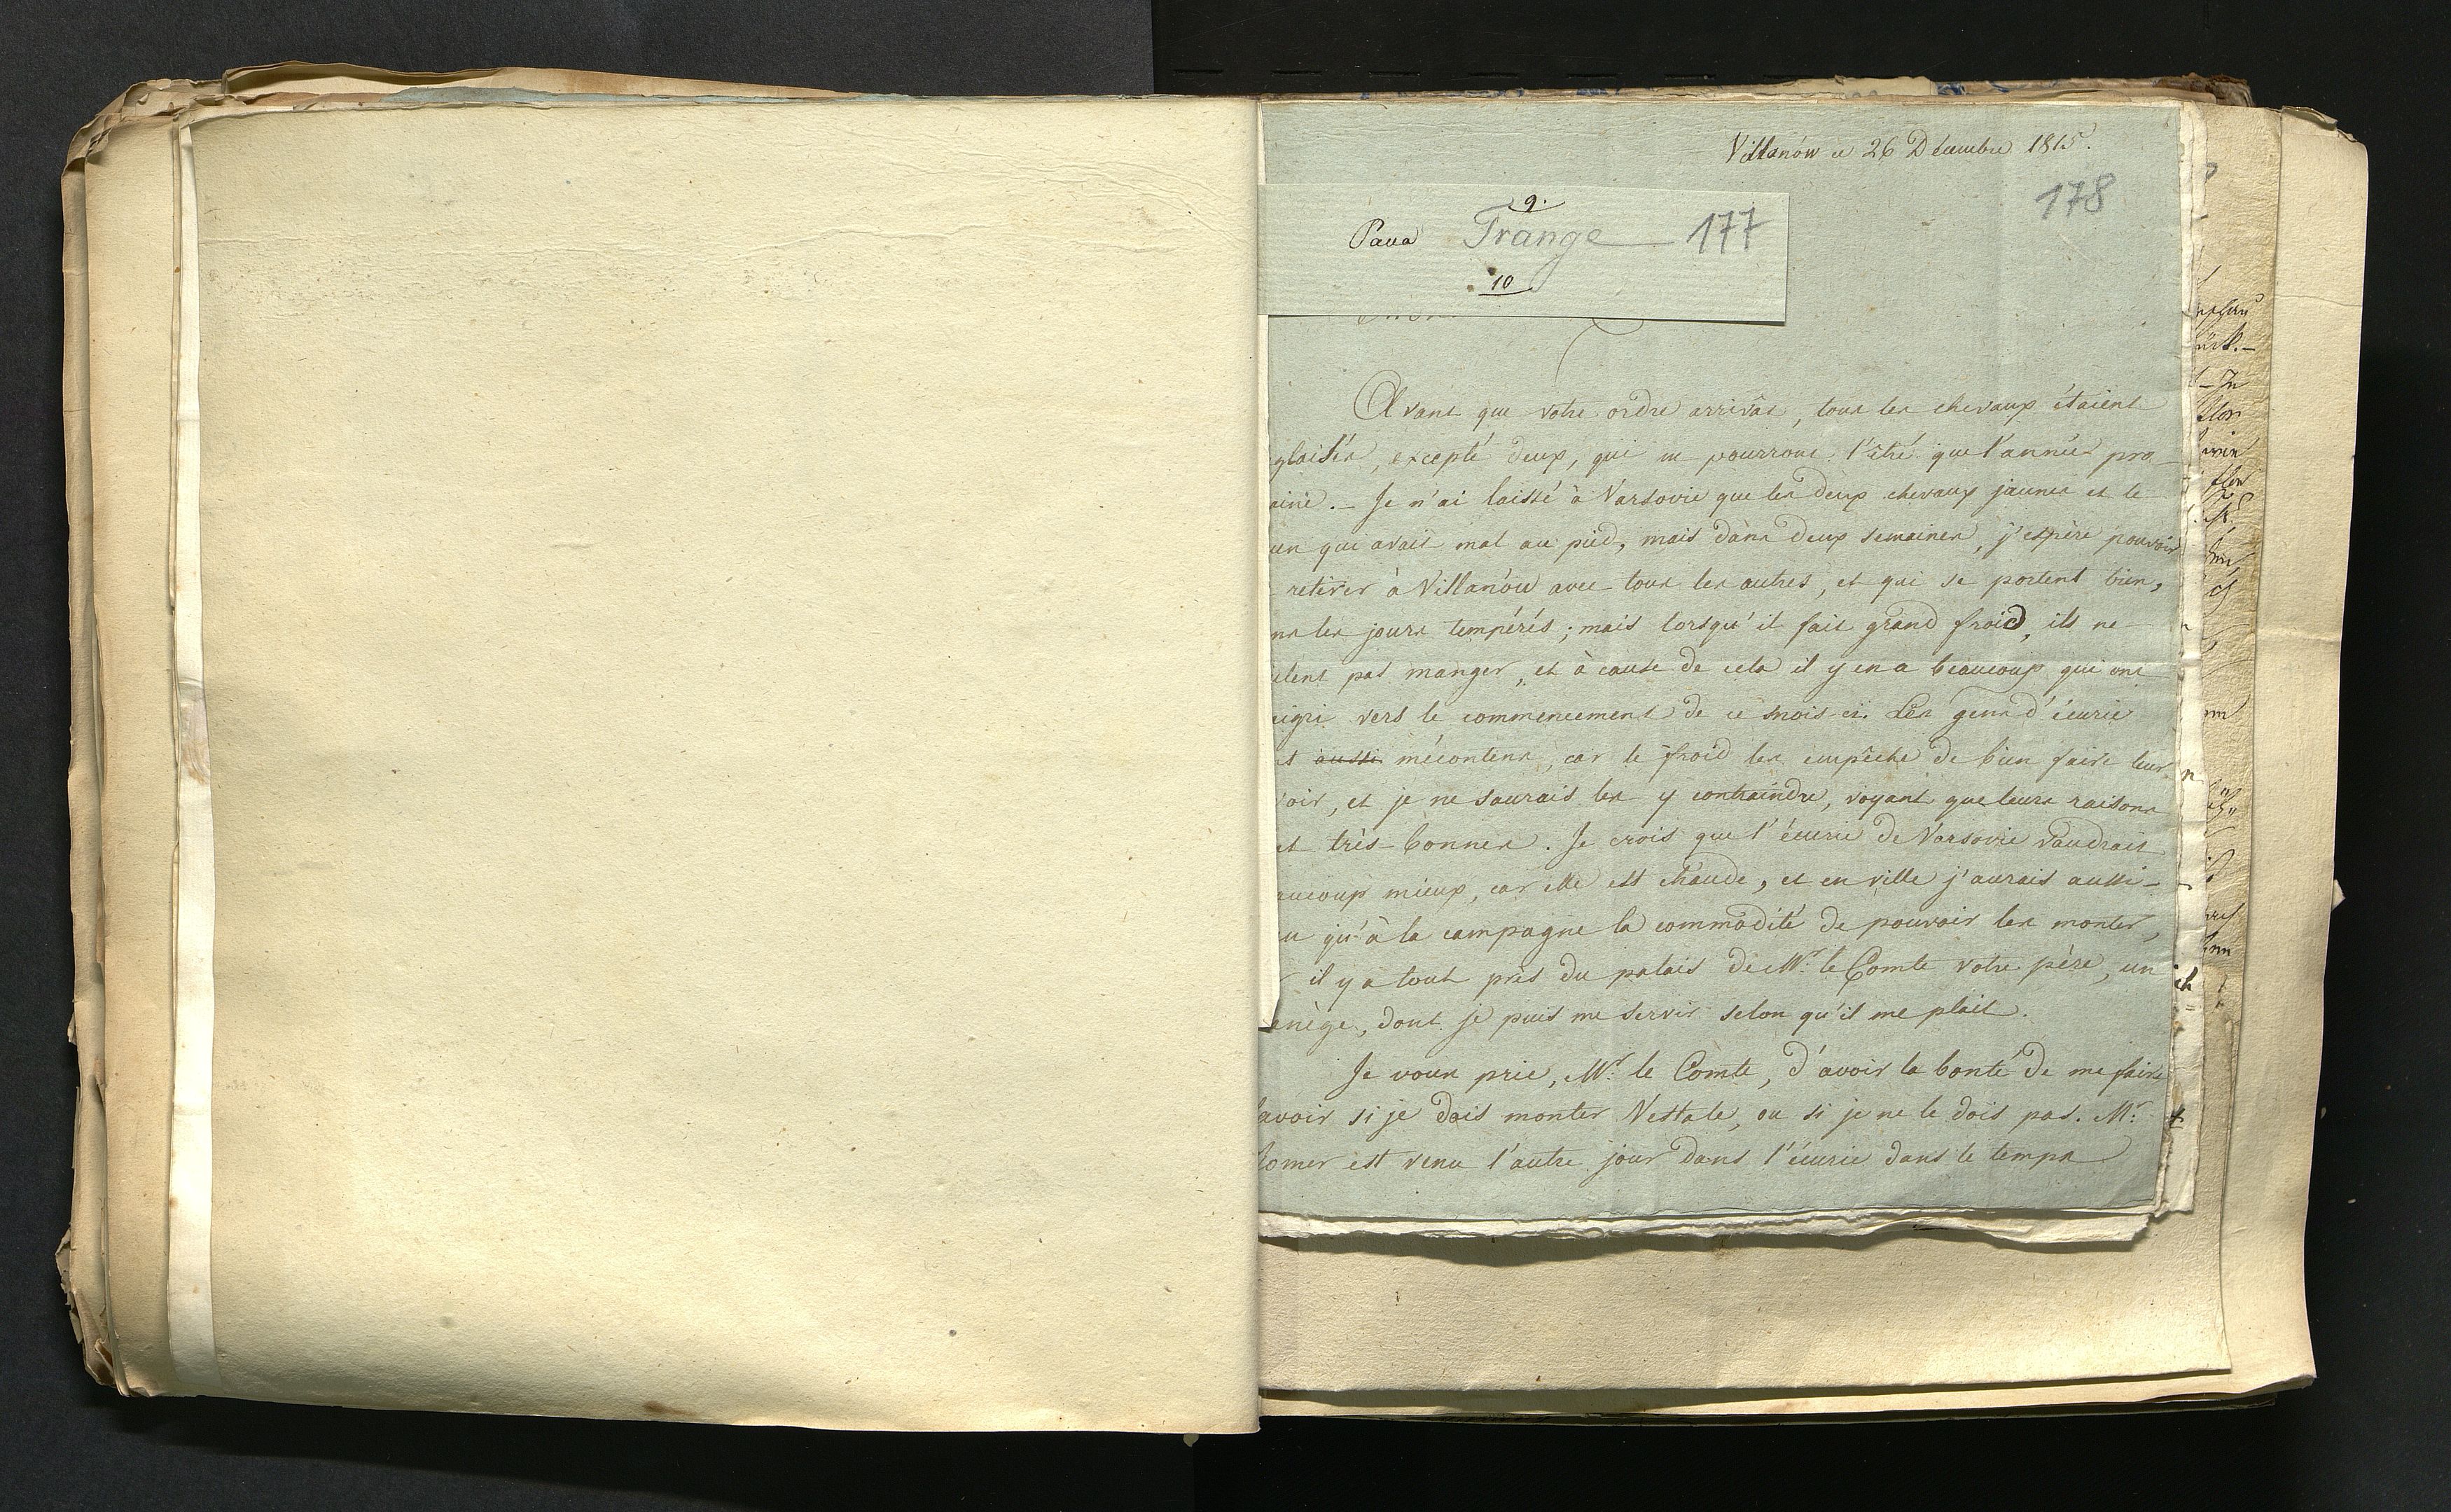 Villanów ce 26 Décembre 1815.
178
9.
Pana Frange 177
10
Avant que votre ordre arrivât, tous les chevaux étaient
glaisés, excepté deux, qui ne pourront l'être que l'année pro-
aine. – Je n'ai laissé à Varsovie que les deux chevaux jaunes et le
un qui avait mal au pied, mais dans deux semaines, j'espère pouvoir
retirer à Villanów avec tous les autres, et qui se portent bien,
ns les jours tempérés; mais lorsqu'il fait grand froid, ils ne
ulent pas manger, et à cause de cela il y en a beaucoup qui ont
aigri vers le commencement de ce mois ci. Les gens d'écurie
t aussi mécontens, car le froid les empêche de bien faire leur
oir, et je ne saurais les y contraindre, voyant que leurs raisons
nt très-bonnes. Je crois que l'écurie de Varsovie vaudrait
aucoup mieux, car elle est chaude, et en ville j'aurais aussi-
n qu'à la campagne la commodité de pouvoir les monter,
r il y a tout près du palais de Mr. le Comte votre père, un
enège, dont je puis me servir selon qu'il me plait.
Je vous prie, Mr. le Comte, d'avoir la bonté de me faire
savoir si je dois monter Vestale, ou si je ne le dois pas. Mr.
Romer est venu l'autre jour dans l'écurie dans le temps